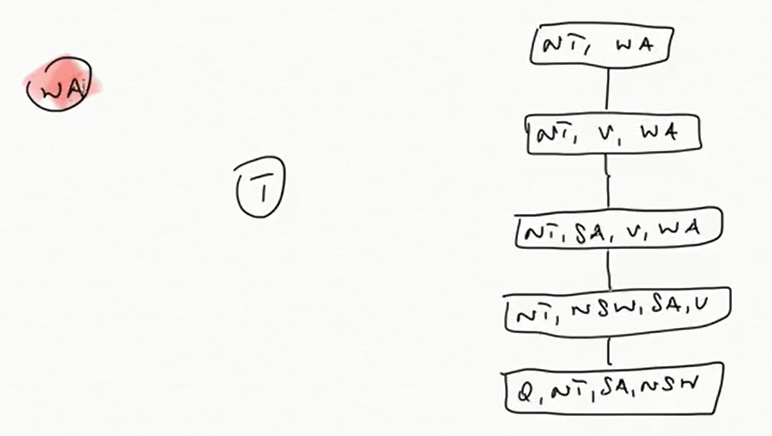 NT, WA
WA
NT, V, WA
T
NT, SA, V, WA
NT, NSW, SA, V
Q, NT, SA, NSW